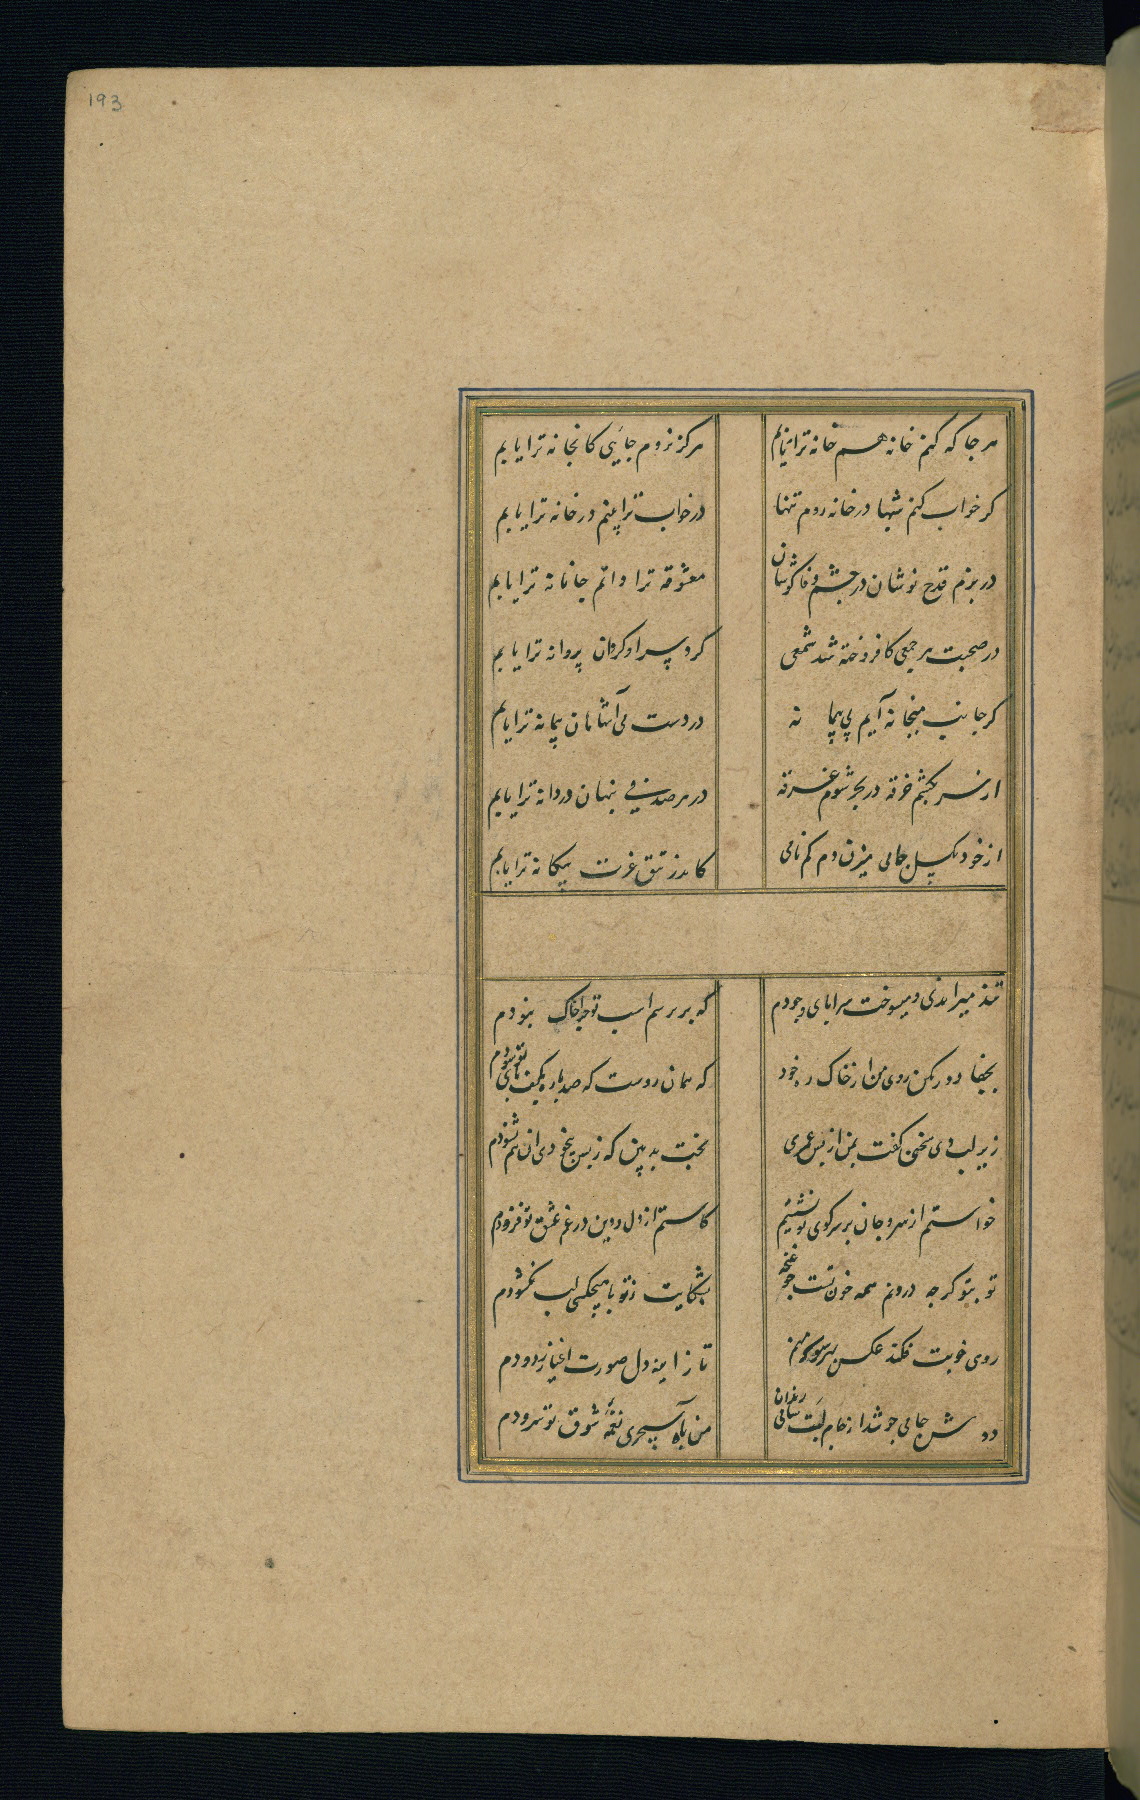 193
هر جا که کنم خانه هم خانه ترا یابم    هرگز نروم جایی کانجا نه ترا یابم
کر خواب کنم شبها در خانه روم تنها    در خواب ترا بینم در خانه ترا یابم
در بزم قدح نوشان در چشم وفا کوشان    معشوقه ترا دانم جانانه ترا یابم
در صحبت هر جمعی کافروخته شد شمعی    کرد سر او کردان پروانه ترا یابم
کر جانب میخانه آیم پی پیمانه    در دست می آشامان پیمانه ترا یابم
از سر بکشم خرقه در بحر شوم غرقه    در هر صدفی پنهان دردانه ترا یابم
از خود بکسل جامی میزن دم کم نامی    کاندر تتق عزت بیکانه ترا یابم
تند میراندی و میسوخت سراپای وجودم    که بر سم اسب تو چرا خاک نبودم
بجفا دور مکن روی من از خاک ره خود    که همان روست که صد بار بکف پای تو سودم
زیر لب دی سخنی کفت بمن از پس عمری    بخت بد بین که ز بس بیخودی آن هم نشنودم
خواستم از سر و جان بر سر کوی تو نشستم    کاستم از دل و دین در غم عشق تو فزودم
تو بتو کر چه درونم همه خونست چو غنچه    بشکایت ز تو با هیچکسی لب نکشودم
روی خوبت فکند عکس بهر سو که نهم    تا ز آینه دل صورت اغیار زدودم
دوش جامی چو شد از جام لبت ساقی رندان    من بآه سحری نغمه شوق تو سرودم